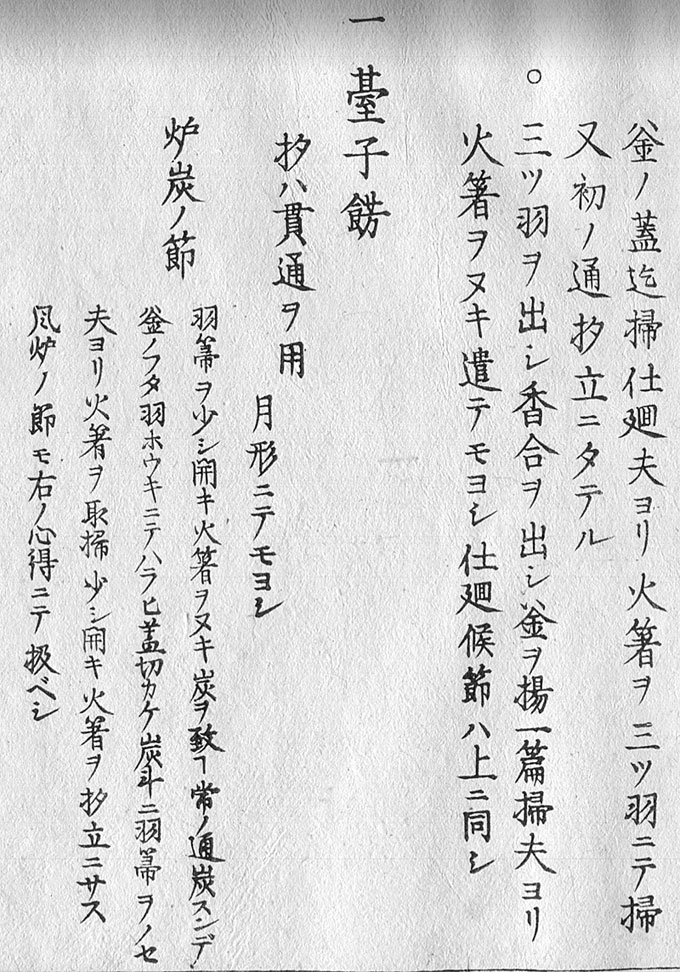 釜ノ蓋迄掃仕廻夫ヨリ火箸ヲ三ツ羽ニテ掃
又初ノ通杓立ニタテル
○三ツ羽ヲ出シ香合ヲ出シ釜ヲ揚一篇掃夫ヨリ
火箸ヲヌキ遣テモヨシ仕廻候節ハ上ニ同シ
一臺子餝
杓ハ貫通ヲ用月形ニテモヨシ
炉炭ノ節
羽箒ヲ少シ開キ火箸ヲヌキ炭ヲ致ヿ常ノ通炭スンデ
釜ノフタ羽ホウキニテハラヒ蓋切カケ炭斗ニ羽箒ヲノセ
夫ヨリ火箸ヲ取掃少シ開キ火箸ヲ杓立ニサス
風炉ノ節モ右ノ心得ニテ扱ベシ